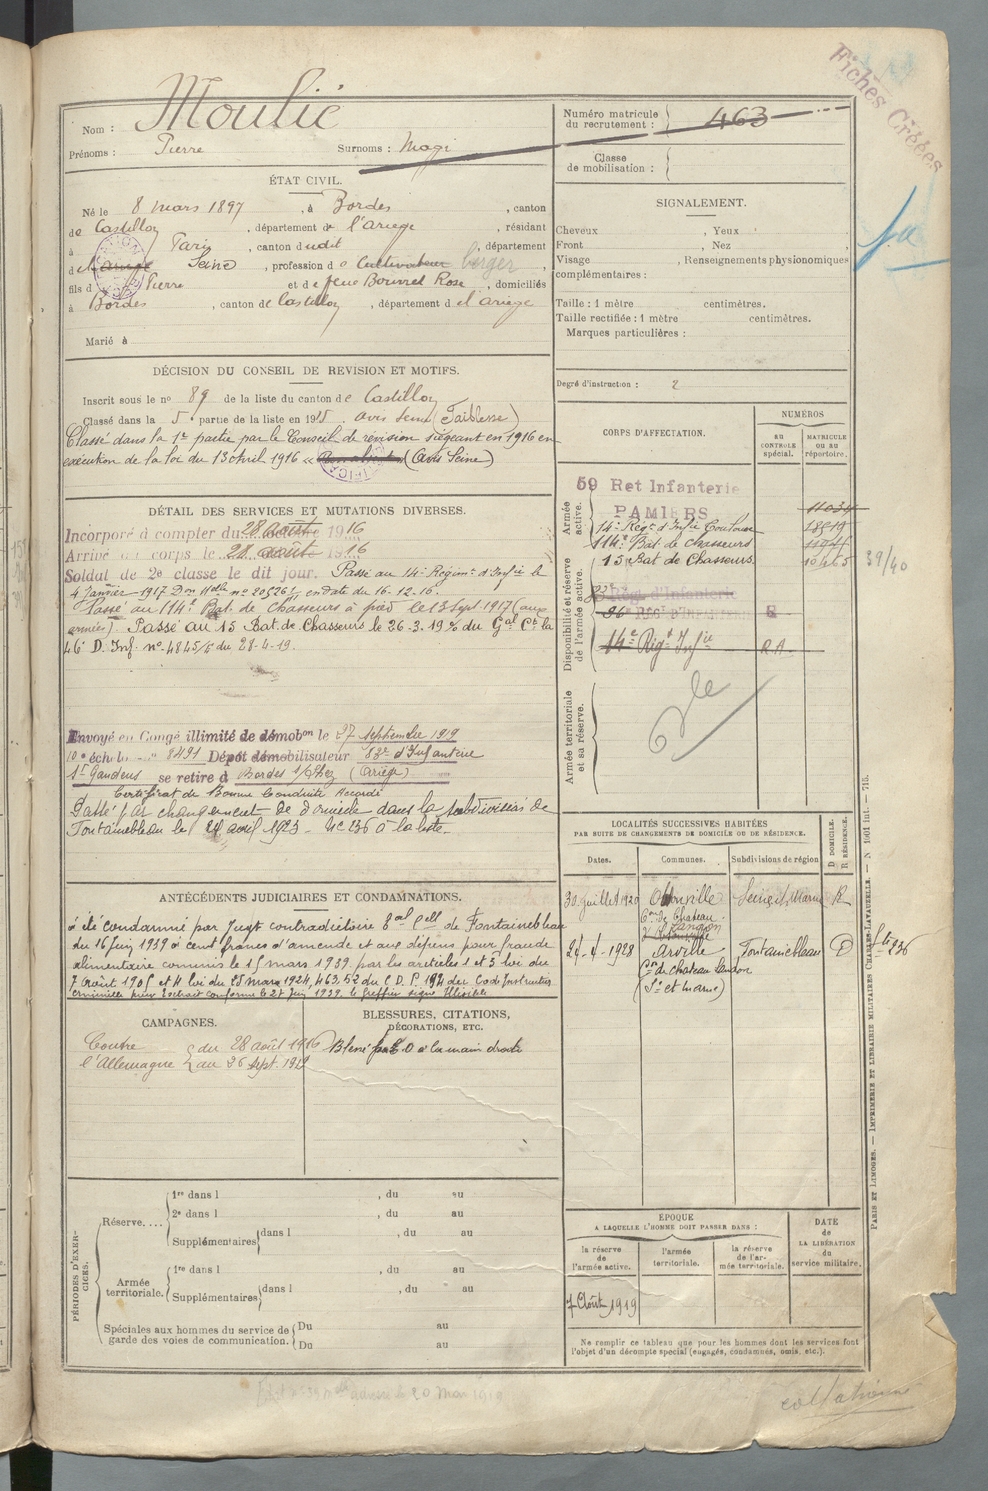 Fiches Créées
Nom : Moulié
Prénoms : Pierre Surnoms : Magi
Numéro matricule du recrutement : 463
Classe de mobilisation :
ÉTAT CIVIL.
Né le 8 mars 1897, à Bordes, canton
de Castillon, département de l'ariege, résidant
à Paris, canton dudit, département
d Ariège Seine, profession de Cultivateur berger,
fils d Pierre et de feue Bourret Rose, domiciliés
à Bordes, canton de Castillon, département de l'ariege
Marié à
SIGNALEMENT.
Cheveux, Yeux,
Front, Nez,
Visage, Renseignements physionomiques
complémentaires :
Taille : 1 mètre centimètres.
Taille rectifiée : 1 mètre centimètres.
Marques particulières :
Degré d'instruction : 2
DÉCISION DU CONSEIL DE REVISION ET MOTIFS.
Inscrit sous le no 89 de la liste du canton de Castillon
Classé dans la 5e partie de la liste en 1915. avis Seine (Faiblesse)
Classé dans la 1re partie par le Conseil de révision siégeant en 1916 en
exécution de la loi du 13 Avril 1916 « Bon absent » (Avis Seine)
DÉTAIL DES SERVICES ET MUTATIONS DIVERSES.
Incorporé à compter du 28 août 1916
Arrivé au corps le 28 août 1916
Soldat de 2e classe le dit jour. Passé au 14e Régimt d'Infie le
4 Janvier 1917 Don Mlle no 20526/ en date du 16.12.16.
Passé au 114e Bat. de Chasseurs à pied le 13 Sept. 1917 (aux
armées). Passé au 15 Bat. de Chasseurs le 26.3.19 du Gal Ct la
46e D. Inf. no 4845/ du 28-4-19.
Envoyé en Congé illimité de démobon le 27 septembre 1919
10e échelon no 8491 Dépôt démobilisateur 83e d'Infanterie
St Gaudens se retire à Bordes s/Lez (Ariège)
Certificat de Bonne Conduite Accordé
Passé par changement de domicile dans la subdivision de
Fontainebleau le 24 avril 1923 - No 236 à la liste.
CORPS D'AFFECTATION.
NUMÉROS
au CONTROLE spécial.
MATRICULE ou au répertoire.
Armée active.
59 Ret Infanterie
PAMIERS 11034
14e Régt d'Infie Toulouse 18819
114e Bat. de Chasseurs
15 Bat de Chasseurs 10465
39/40
Disponibilité et réserve de l'armée active.
Rég. d'Infanterie
96e Reg. d'Infanterie
14e Régt Infie R.A.
Armée territoriale et sa réserve.
ANTÉCÉDENTS JUDICIAIRES ET CONDAMNATIONS.
a été condamné par Jugt contradictoire Bal Cell de Fontainebleau
du 16 juin 1939 à cent francs d'amende et aux dépens pour fraude
alimentaire commis le 15 mars 1939. par les articles 1 et 5 loi du
7 août 1905 et 4 loi du 28 mars 1924, 463, 52 du C.D.P. 194 du Code Instruction
criminelle pour Extrait conforme le 27 Juin 1939. le greffier signé Illisible
LOCALITÉS SUCCESSIVES HABITÉES
PAR SUITE DE CHANGEMENTS DE DOMICILE OU DE RÉSIDENCE.
Dates. Communes. Subdivisions de région D DOMICILE. R RÉSIDENCE.
30 juillet 1920 Obsonville Seine et Marne R
Con de Chateau-Landon
24-4-1928 Arville Fontainebleau D
Con de Chateau Landon
(Se et marne)
236
CAMPAGNES.
Contre l'Allemagne du 28 août 1916 au 26 Sept. 1919
BLESSURES, CITATIONS, DÉCORATIONS, ETC.
Blessé par E.O à la main droite
PÉRIODES D'EXERCICES.
Réserve....
1re dans l, du au
2e dans l, du au
Supplémentaires dans l, du au
Armée territoriale.
1re dans l, du au
Supplémentaires dans l, du au
Spéciales aux hommes du service de garde des voies de communication.
Du au
Du au
ÉPOQUE
A LAQUELLE L'HOMME DOIT PASSER DANS :
la réserve de l'armée active.
l'armée territoriale.
la réserve de l'armée territoriale.
DATE de LA LIBÉRATION du service militaire.
7 Août 1919
Ne remplir ce tableau que pour les hommes dont les services font
l'objet d'un décompte spécial (engagés, condamnés, omis, etc.).
PARIS ET LIMOGES. — IMPRIMERIE ET LIBRAIRIE MILITAIRES CHARLES-LAVAUZELLE. — N 1001 int. — 715.
collationné